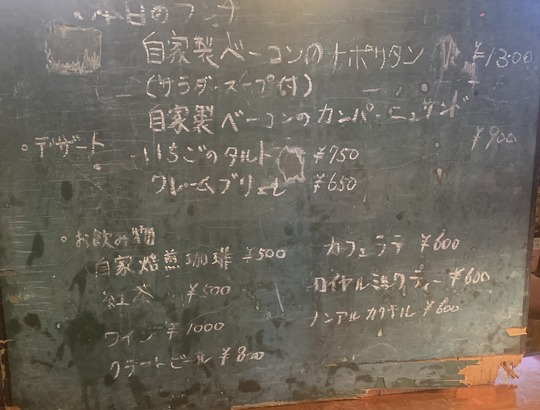 ・今日のランチ
自家製ベーコンのナポリタン ¥1300
(サラダ・スープ付)
自家製ベーコンのカンパーニュサンド ¥900
・デザート いちごのタルト ¥750
クレームブリュレ ¥650
・お飲み物
自家焙煎珈琲 ¥500 カフェラテ ¥600
紅茶 ¥500 ロイヤルミルクティー ¥600
ワイン ¥1000 ノンアルカクテル ¥600
クラフトビール ¥800